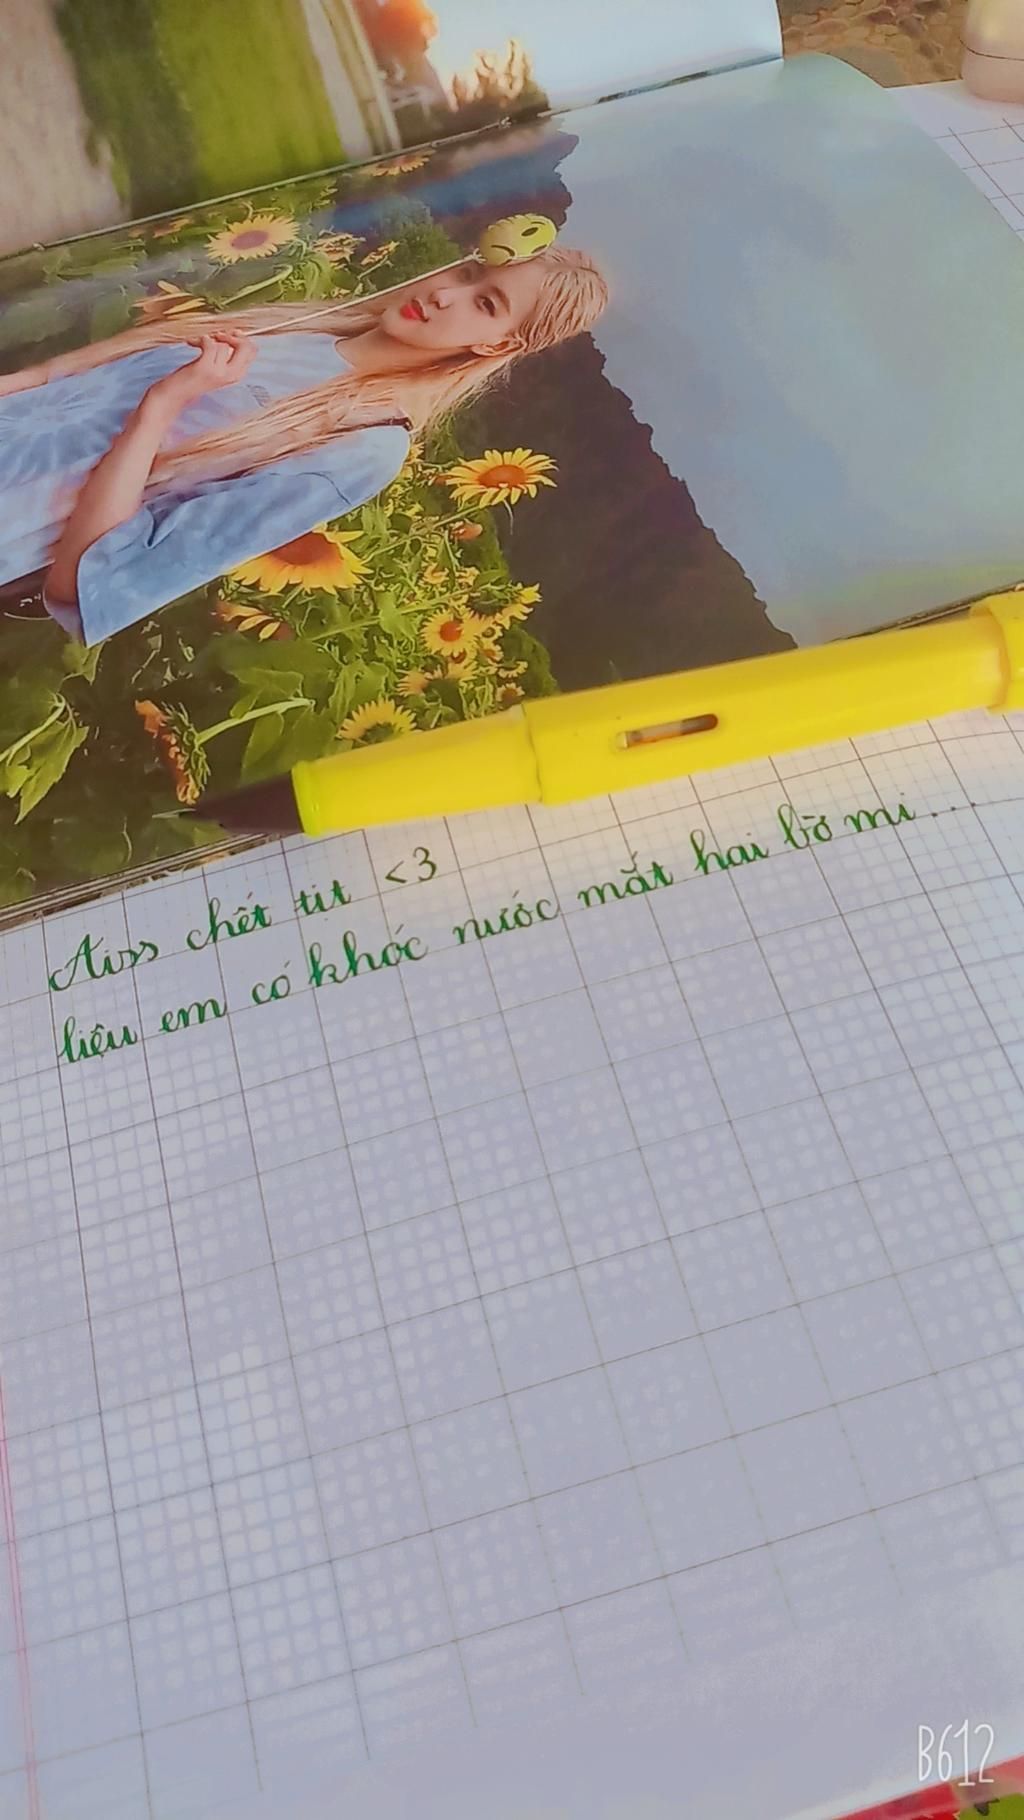 Aiss chết tịt <3
liệu em có khóc nước mắt hai bờ mi...
B612